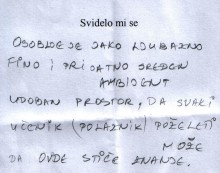 Svidelo mi se
OSOBLJE JE JAKO LJUBAZNO
FINO I PRIJATNO SREDEN
AMBIJENT
UDOBAN PROSTOR, DA SVAKI
UČENIK (POLAZNIK) POŽELETI
MOŽE
DA OVDE STIČE ZNANJE.